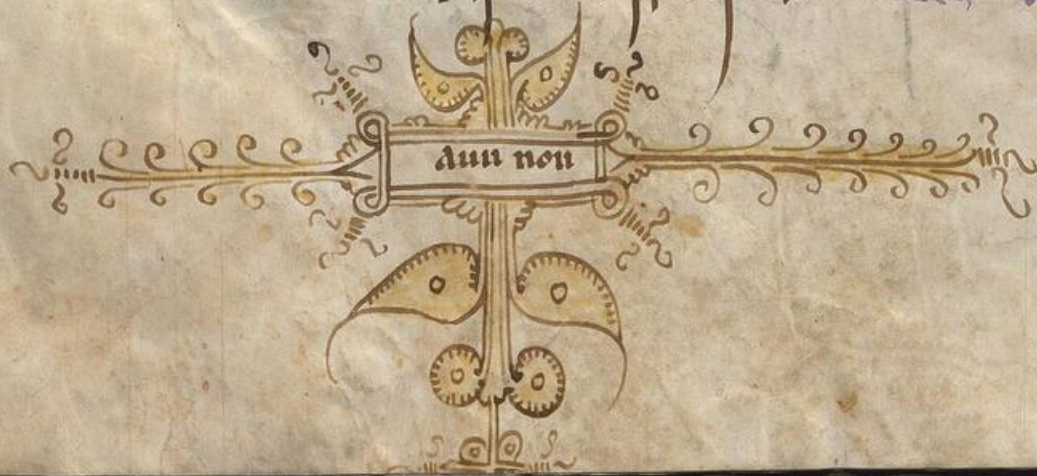 aun non